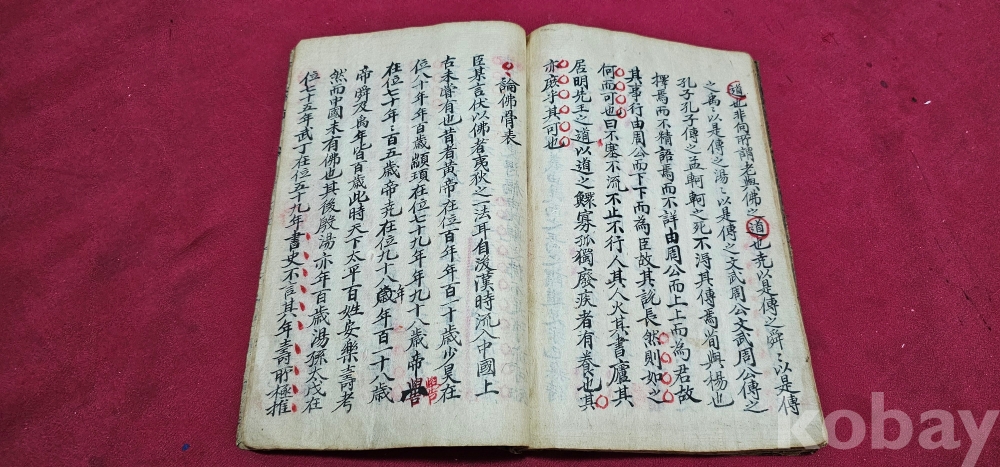 道也非向所謂老與佛之道也尧以是傳之舜〻以是傳
之禹以是傳之湯〻以是傳之文武周公文武周公傳之
孔子孔子傳之孟軻軻之死不得其傳焉荀與楊也
擇焉而不精語焉而不詳由周公而上上而為君故
其事行由周公而下下而為臣故其說長然則如之
何而可也曰不塞不流不止不行人其人火其書廬其
居明先王之道以道之鰥寡孤獨廢疾者有養也其
亦庶乎其可也
論佛骨表
臣某言伏以佛者夷狄之一法耳自後漢時流入中國上
古未嘗有也昔者黃帝在位百年年百十歲少昊在
位八十年年百歲顓頊在位七十九年年九十八歲帝嚳
在位七十年〻百五歲帝尧在位九十八年歲年百一十八歲
帝舜及禹年皆百歲此時天下太平百姓安樂壽考
然而中國未有佛也其後殷湯亦年百歲湯孫太戊在
位七十五年武丁在位五十九年書史不言其年壽所極推
kobay